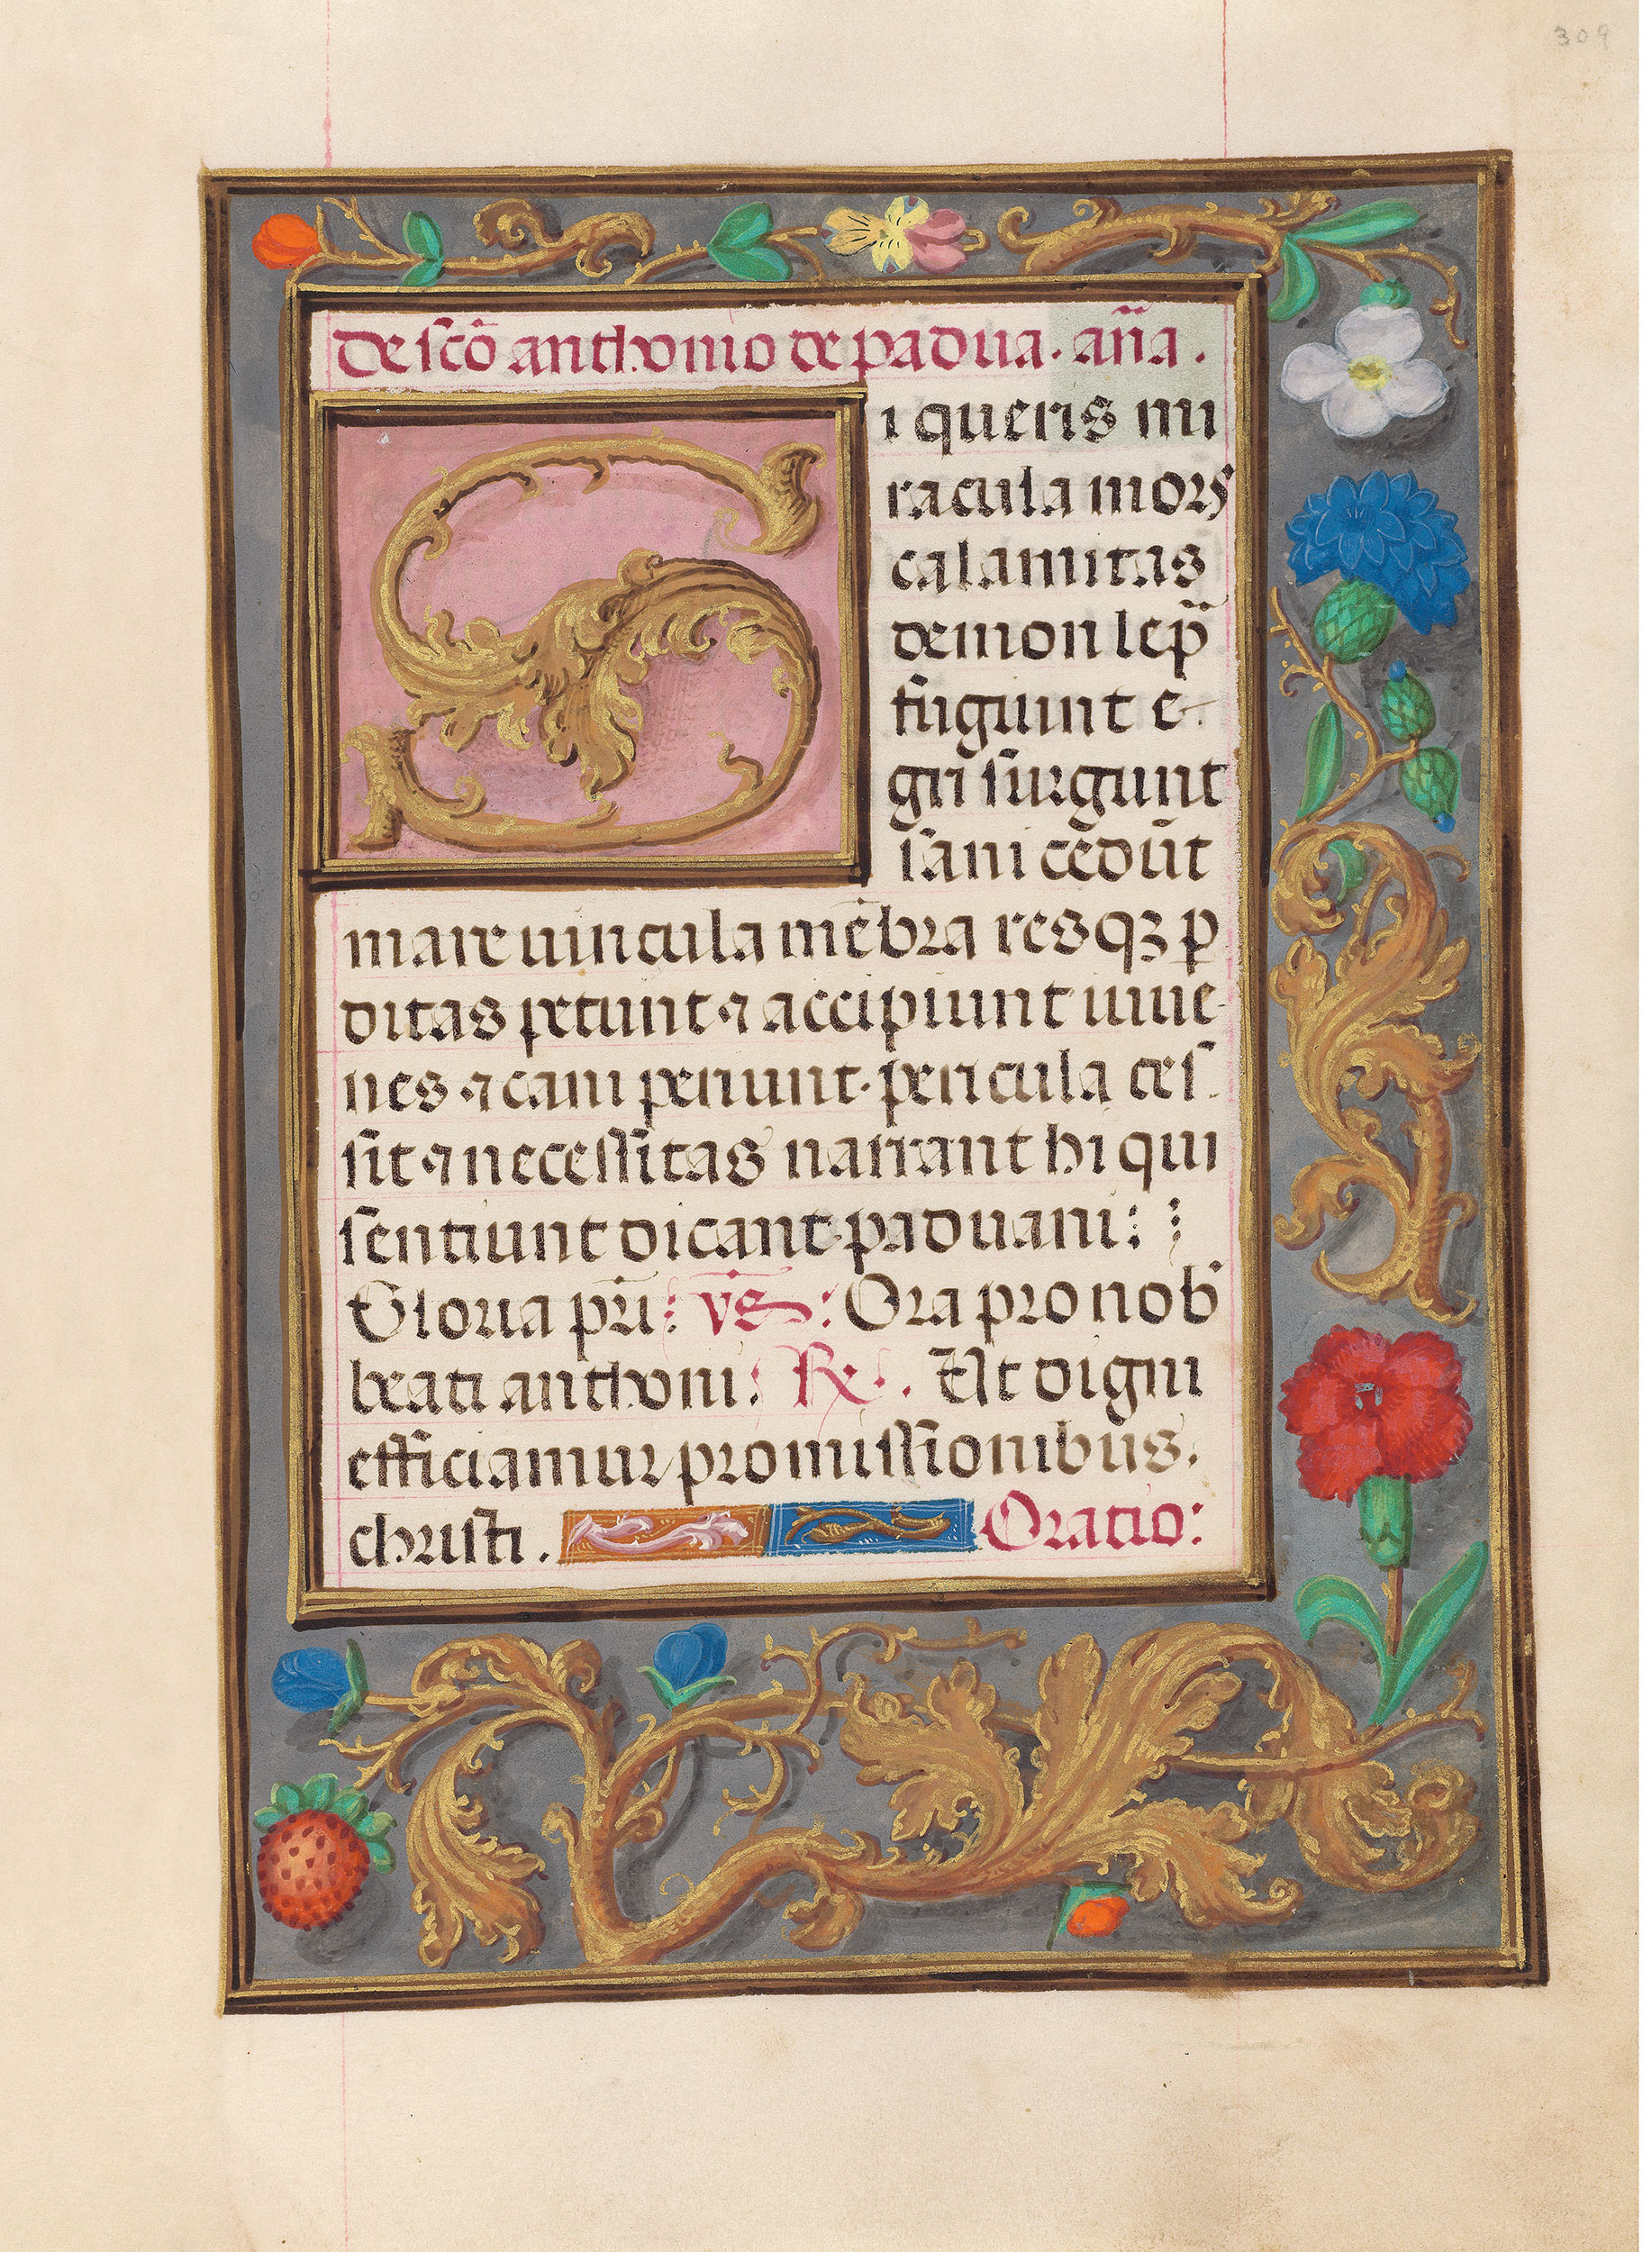 309
De sco᷃ anthonio de padua. an̄a.
Si queris mi
racula mors
calamitas
demon lep̄
fugiunt e-
gri surgunt
sani cedūt
mare uincula mēbra resqꝫ ꝑ
ditas petunt ⁊ accipiunt iuue-
nes ⁊ cani pereunt. pericula ces-
sit ⁊ necessitas narrant hi qui
sentiunt dicant paduani:
Gloria pr̄i: vs̄: Ora pro nob'
beati anthoni: R̷. Ut digni
efficiamur promissionibus.
christi. Oratio: